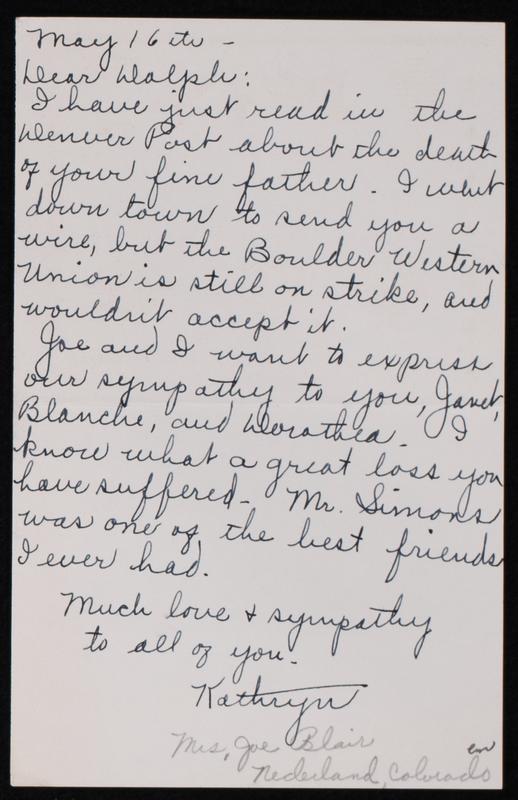 May 16th -
Dear Dolph:
I have just read in the
Denver Post about the death
of your fine father. I went
down town to send you a
wire, but the Boulder Western
Union is still on strike, and
wouldn't accept it.
Joe and I want to express
our sympathy to you, Janet,
Blanche, and Dorathea. I
know what a great loss you
have suffered - Mr. Simons
was one of the best friends
I ever had.
Much love + sympathy
to all of you.
Kathryn
Mrs. Joe Blair
Nederland, Colorado